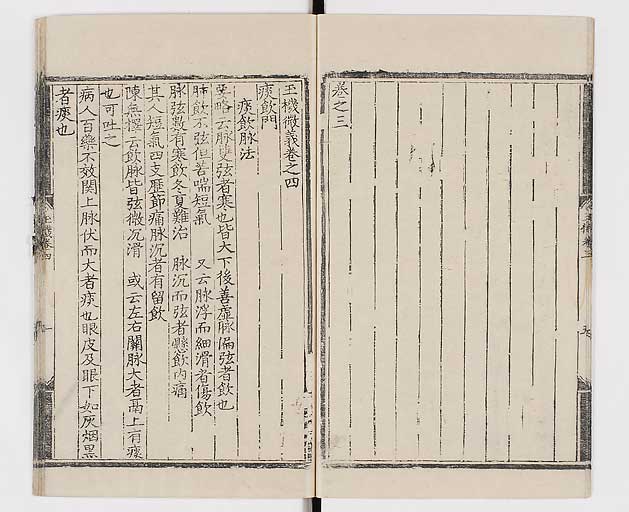 卷之三
玉機微義卷之四
痰飲門
痰飲脉法
要略云脉雙弦者寒也皆大下後善虛脉偏弦者飲也
肺飲不弦但苦喘短氣 又云脉浮而細滑者傷飲
脉弦數有寒飲冬夏難治 脉沉而弦者懸飲内痛
其人短氣四支歷節痛脉沉者有留飲
陳無擇云飲脉皆弦微沉滑 或云左右關脉大者膈上有痰
也可吐之
病人百藥不效関上脉伏而大者痰也眼皮及眼下如灰烟黑
者痰也